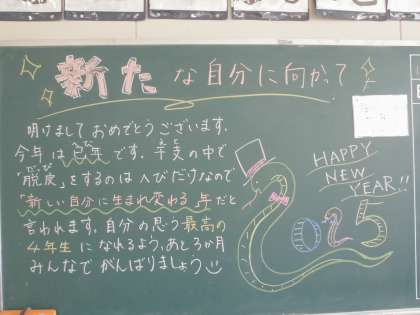 新たな自分に向かって
明けましておめでとうございます。
今年は巳年です。干支の中で
「脱皮」をするのはへびだけなので
「新しい自分に生まれ変わる」年だと
言われます。自分の思う最高の
4年生になれるよう、あと3か月
みんなでがんばりましょう
HAPPY
NEW
YEAR!!
2025